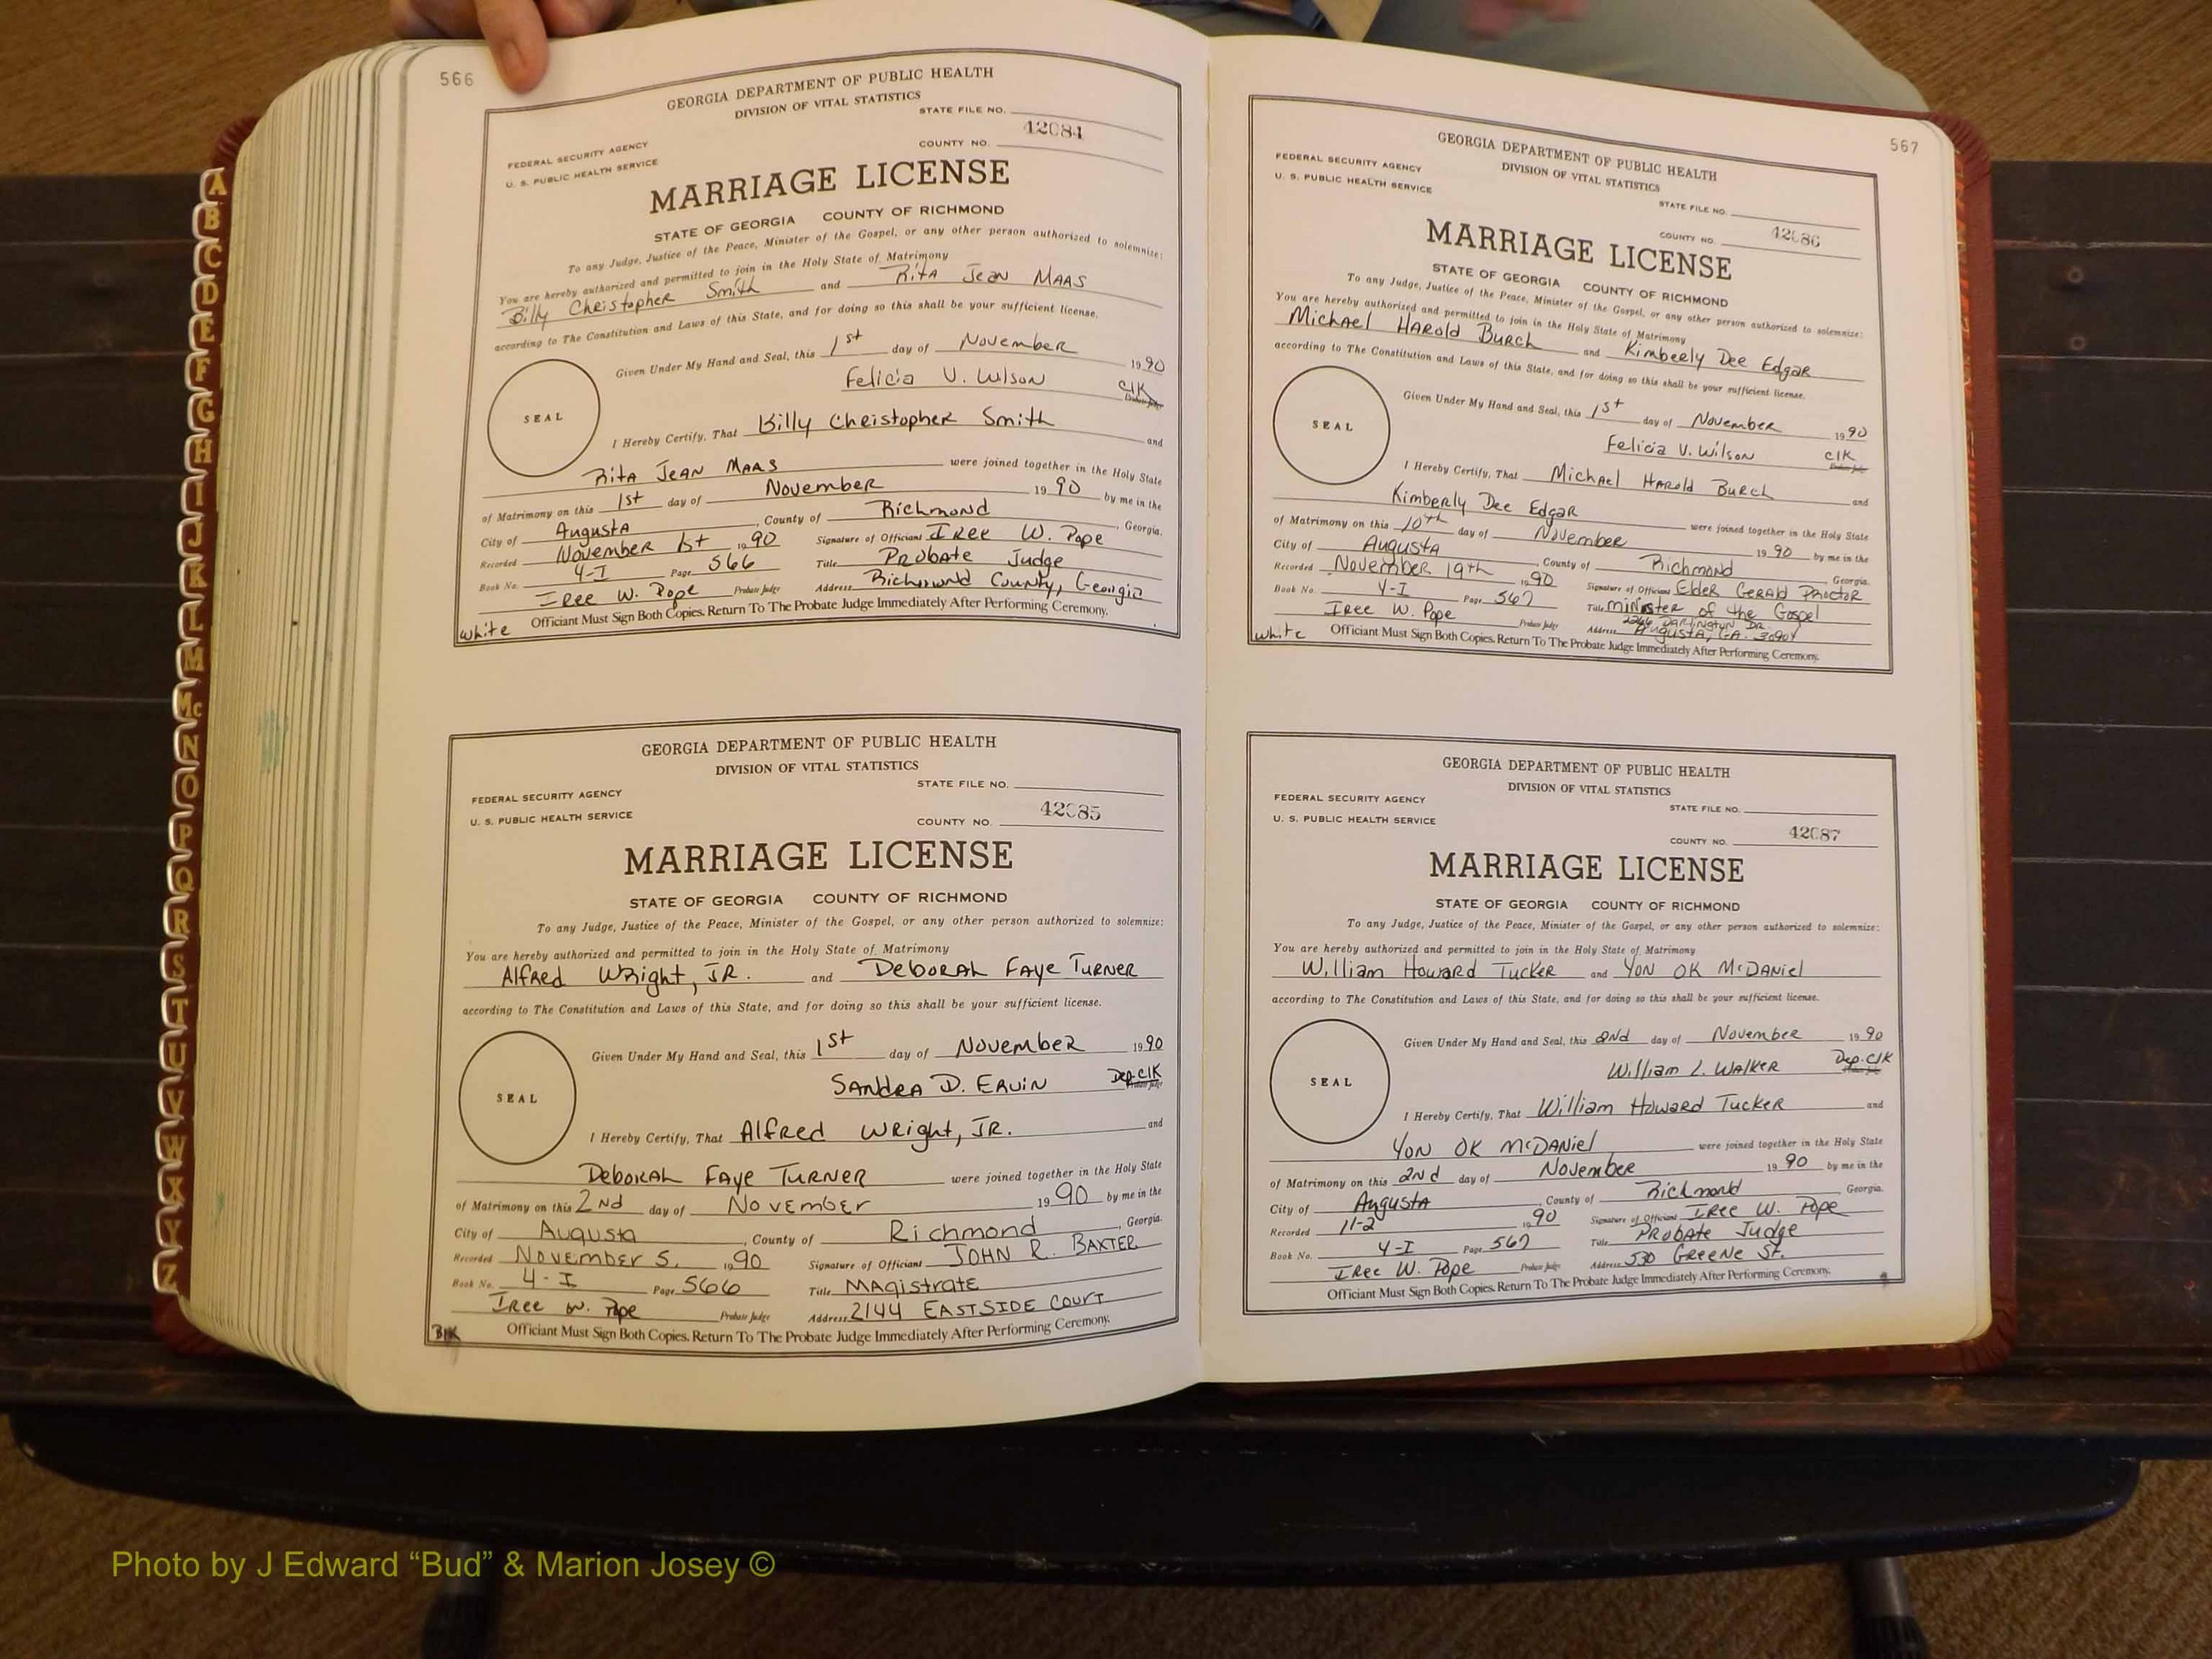 566
GEORGIA DEPARTMENT OF PUBLIC HEALTH
DIVISION OF VITAL STATISTICS
STATE FILE NO.
42084
FEDERAL SECURITY AGENCY
COUNTY NO.
U. S. PUBLIC HEALTH SERVICE
MARRIAGE LICENSE
STATE OF GEORGIA COUNTY OF RICHMOND
To any Judge, Justice of the Peace, Minister of the Gospel, or any other person authorized to solemnize:
You are hereby authorized and permitted to join in the Holy State of Matrimony
Billy Christopher Smith and Rita Jean MAAS
according to The Constitution and Laws of this State, and for doing so this shall be your sufficient license.
Given Under My Hand and Seal, this 1st day of November 1990
Felicia V. Wilson Clk
Probate Judge
SEAL
I Hereby Certify, That Billy Christopher Smith and
Rita Jean MAAS were joined together in the Holy State
of Matrimony on this 1st day of November 1990 by me in the
City of Augusta, County of Richmond, Georgia.
Recorded November 1st 1990 Signature of Officiant Iree W. Pope
Book No. 4-I Page 566 Title Probate Judge
Iree W. Pope Probate Judge Address Richmond County, Georgia
white Officiant Must Sign Both Copies. Return To The Probate Judge Immediately After Performing Ceremony.
GEORGIA DEPARTMENT OF PUBLIC HEALTH
DIVISION OF VITAL STATISTICS
STATE FILE NO.
FEDERAL SECURITY AGENCY
42085
U. S. PUBLIC HEALTH SERVICE
COUNTY NO.
MARRIAGE LICENSE
STATE OF GEORGIA COUNTY OF RICHMOND
To any Judge, Justice of the Peace, Minister of the Gospel, or any other person authorized to solemnize:
You are hereby authorized and permitted to join in the Holy State of Matrimony
Alfred Wright, JR. and Deborah Faye Turner
according to The Constitution and Laws of this State, and for doing so this shall be your sufficient license.
Given Under My Hand and Seal, this 1st day of November 1990
Sandra D. Ervin Dep. Clk
Probate Judge
SEAL
I Hereby Certify, That Alfred Wright, JR. and
Deborah Faye Turner were joined together in the Holy State
of Matrimony on this 2nd day of November 1990 by me in the
City of Augusta, County of Richmond, Georgia.
Recorded November 5, 1990 Signature of Officiant JOHN R. BAXTER
Book No. 4-I Page 566 Title Magistrate
Iree W. Pope Probate Judge Address 2144 EASTSIDE COURT
Blk Officiant Must Sign Both Copies. Return To The Probate Judge Immediately After Performing Ceremony.
567
GEORGIA DEPARTMENT OF PUBLIC HEALTH
DIVISION OF VITAL STATISTICS
FEDERAL SECURITY AGENCY
U. S. PUBLIC HEALTH SERVICE
STATE FILE NO.
COUNTY NO. 42086
MARRIAGE LICENSE
STATE OF GEORGIA COUNTY OF RICHMOND
To any Judge, Justice of the Peace, Minister of the Gospel, or any other person authorized to solemnize:
You are hereby authorized and permitted to join in the Holy State of Matrimony
Michael Harold Burch and Kimberly Dee Edgar
according to The Constitution and Laws of this State, and for doing so this shall be your sufficient license.
Given Under My Hand and Seal, this 1st day of November 1990
Felicia V. Wilson Clk
Probate Judge
SEAL
I Hereby Certify, That Michael Harold Burch and
Kimberly Dee Edgar were joined together in the Holy State
of Matrimony on this 10th day of November 1990 by me in the
City of Augusta, County of Richmond Georgia.
Recorded November 19th 1990 Signature of Officiant Elder Gerald Proctor
Book No. 4-I Page 567 Title minister of the Gospel
2266 Darlington Dr.
Iree W. Pope Probate Judge Address Augusta, GA. 30904
white Officiant Must Sign Both Copies. Return To The Probate Judge Immediately After Performing Ceremony.
GEORGIA DEPARTMENT OF PUBLIC HEALTH
DIVISION OF VITAL STATISTICS
FEDERAL SECURITY AGENCY
STATE FILE NO.
U. S. PUBLIC HEALTH SERVICE
42087
COUNTY NO.
MARRIAGE LICENSE
STATE OF GEORGIA COUNTY OF RICHMOND
To any Judge, Justice of the Peace, Minister of the Gospel, or any other person authorized to solemnize:
You are hereby authorized and permitted to join in the Holy State of Matrimony
William Howard Tucker and Yon OK McDaniel
according to The Constitution and Laws of this State, and for doing so this shall be your sufficient license.
Given Under My Hand and Seal, this 2nd day of November 1990
William L. Walker Dep. Clk
Probate Judge
SEAL
I Hereby Certify, That William Howard Tucker and
Yon OK McDaniel were joined together in the Holy State
of Matrimony on this 2nd day of November 1990 by me in the
City of Augusta, County of Richmond, Georgia.
Recorded 11-2 1990 Signature of Officiant Iree W. Pope
Book No. 4-I Page 567 Title Probate Judge
Iree W. Pope Probate Judge Address 530 Greene St.
Officiant Must Sign Both Copies. Return To The Probate Judge Immediately After Performing Ceremony.
A
B
C
D
E
F
G
H
I
J
K
L
M
Mc
N
O
P
Q
R
S
T
U
V
W
X
Y
Z
Photo by J Edward “Bud” & Marion Josey ©